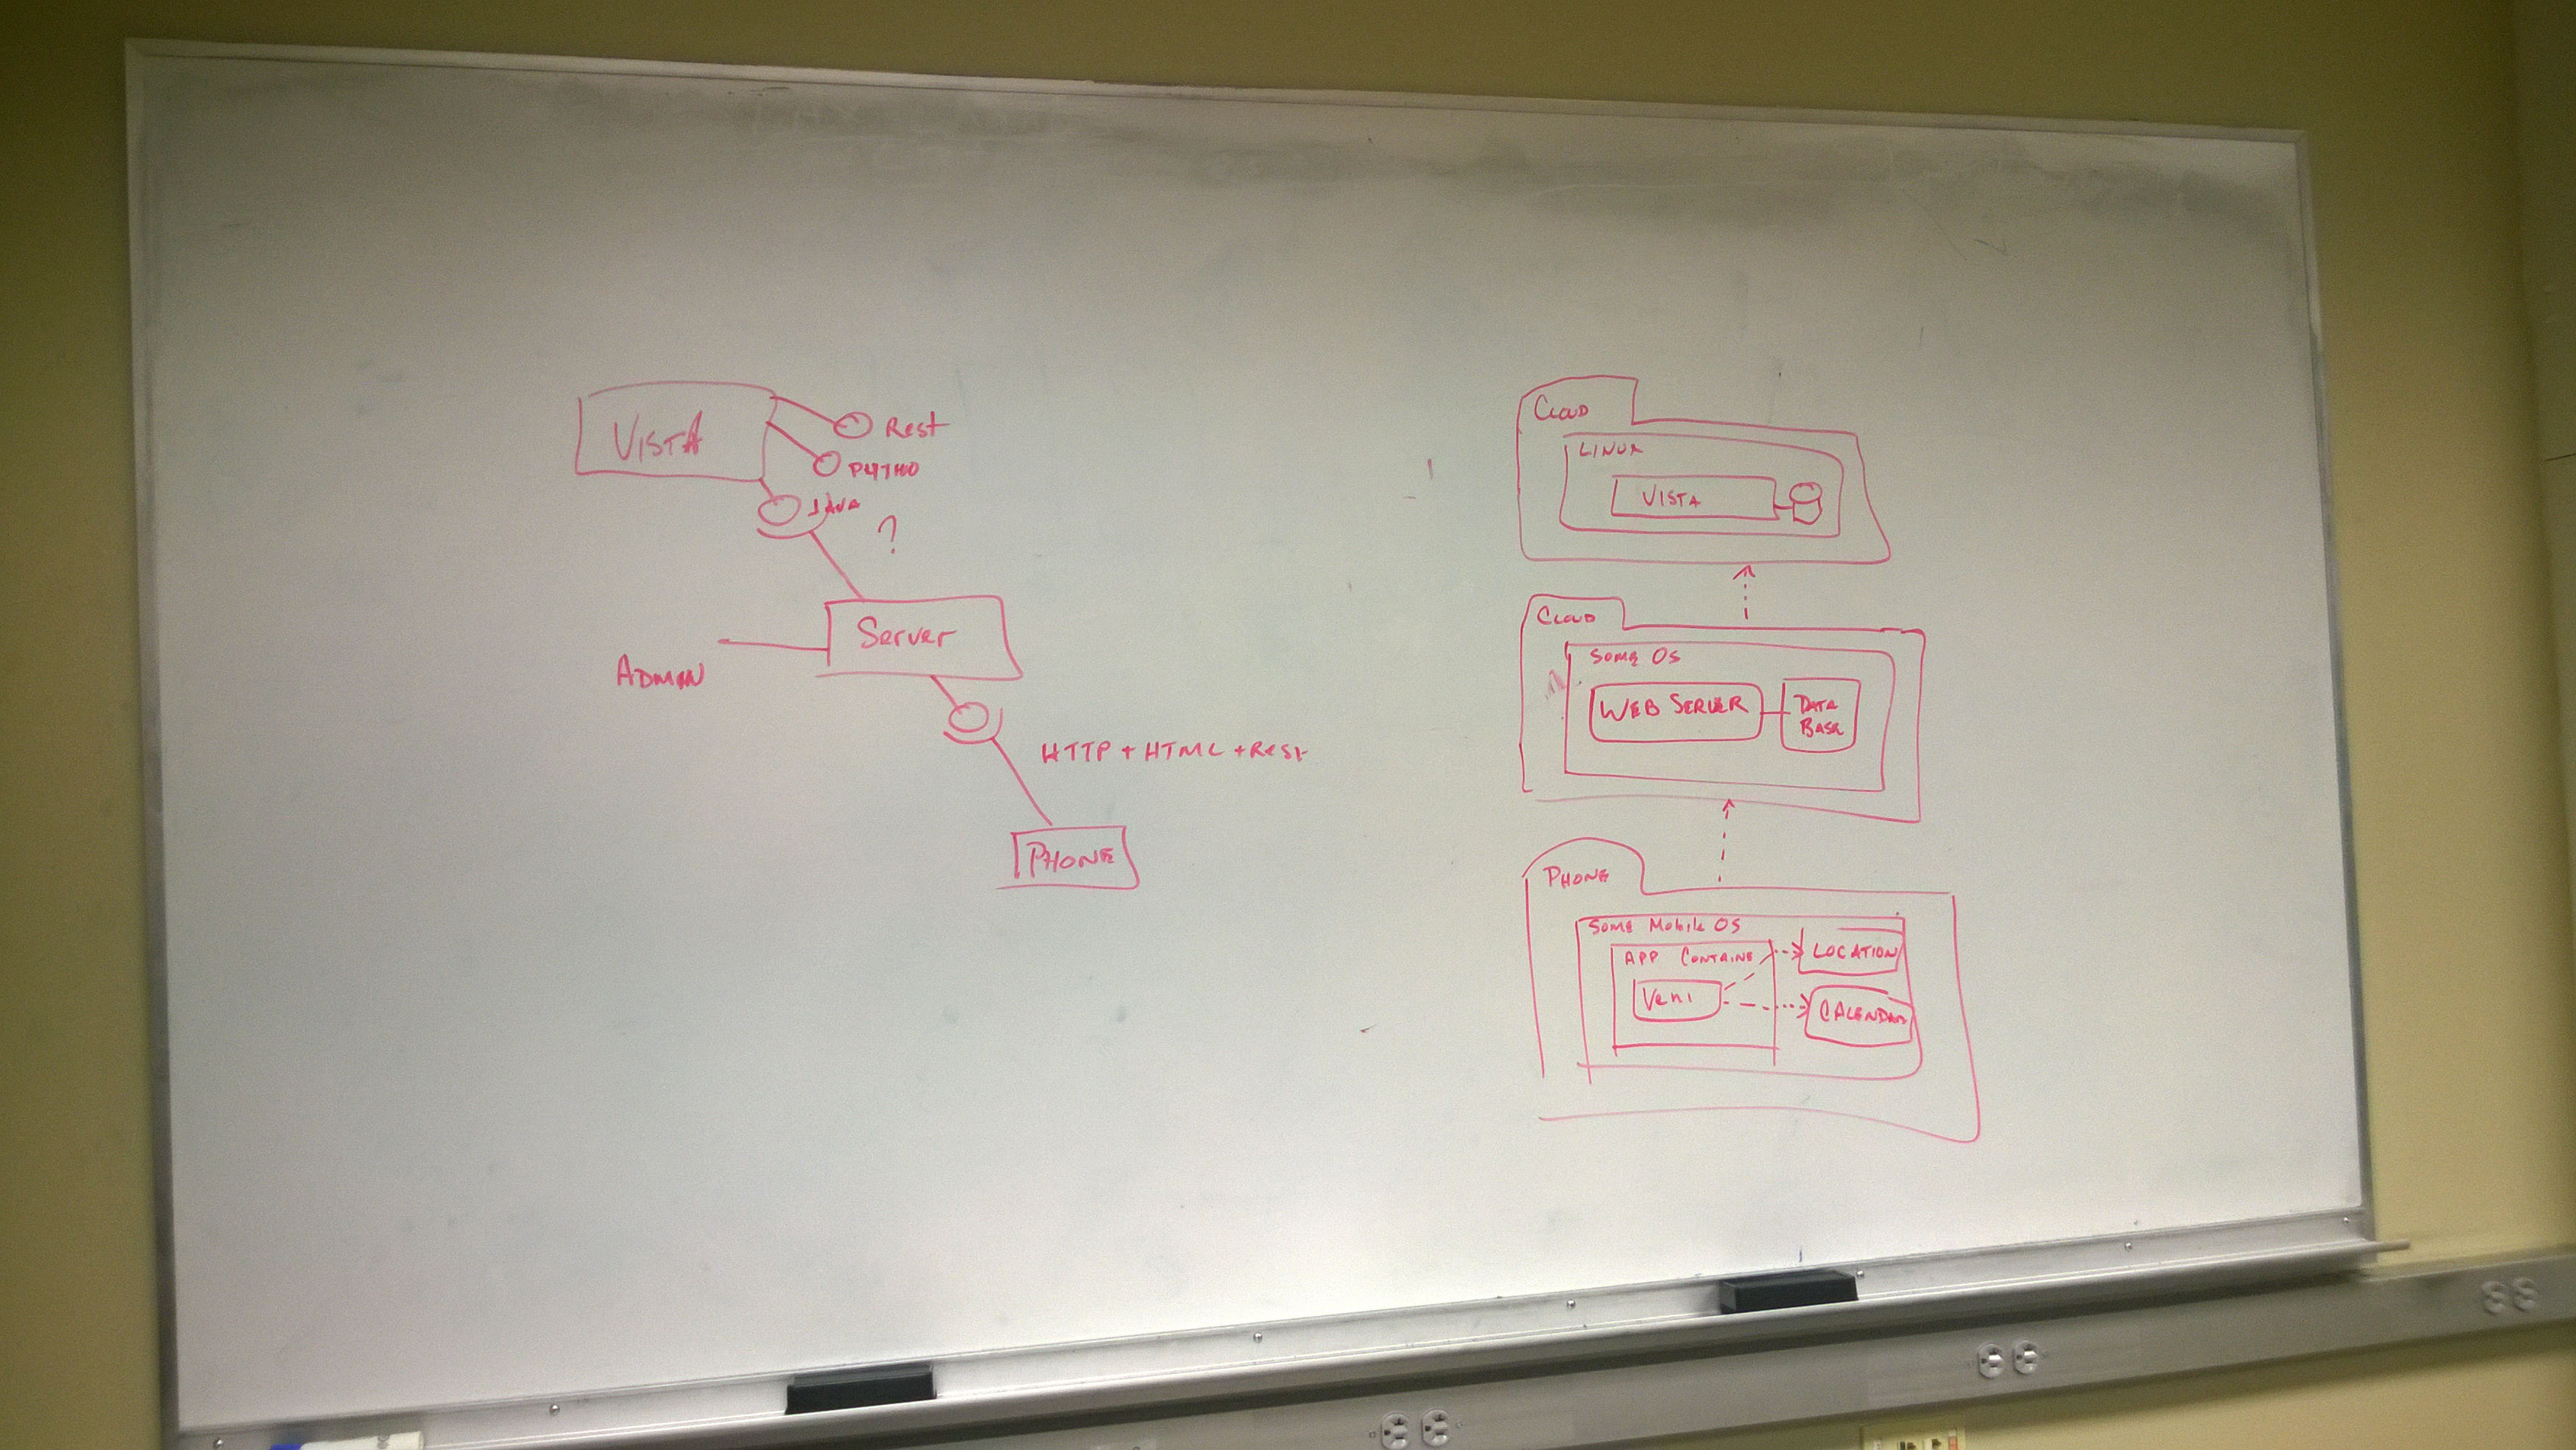 VISTA
Rest
PYTHO
JAVA
?
Server
ADMIN
HTTP + HTML + Rest
PHONE
CLOUD
LINUX
VISTA
CLOUD
SOME OS
WEB SERVER
DATA
BASE
PHONE
SOME Mobile OS
APP CONTAINE
LOCATION
Veni
CALENDAR